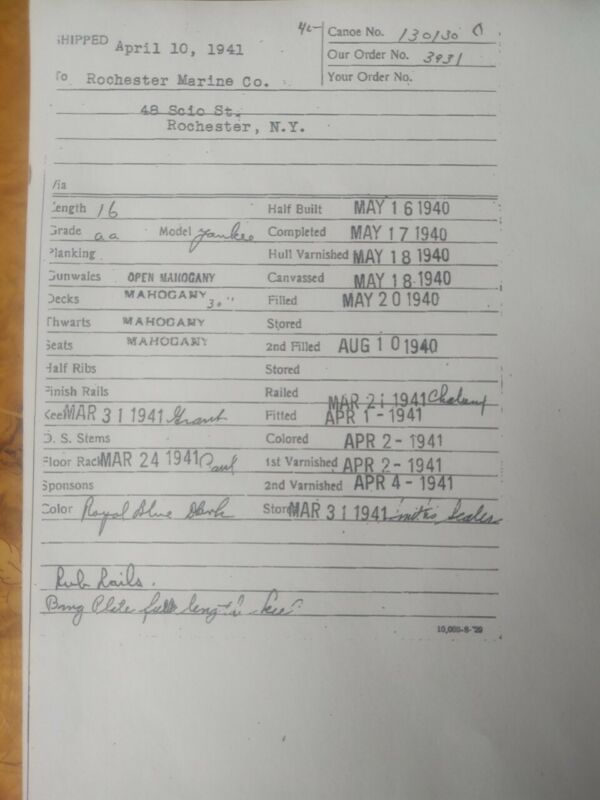 SHIPPED April 10, 1941 Canoe No. 130130
To Rochester Marine Co. Our Order No. 3931
Your Order No.
48 Scio St.
Rochester, N.Y.
Via
Length 16 Half Built MAY 16 1940
Grade aa Model Yankee Completed MAY 17 1940
Planking Hull Varnished MAY 18 1940
Gunwales OPEN MAHOGANY Canvassed MAY 18 1940
Decks MAHOGANY 30" Filled MAY 20 1940
Thwarts MAHOGANY Stored
Seats MAHOGANY 2nd Filled AUG 10 1940
Half Ribs Stored
Finish Rails Railed MAR 21 1941
Keel MAR 31 1941 Grant Fitted APR 1 - 1941
O. S. Stems Colored APR 2 - 1941
Floor Rack MAR 24 1941 Paul 1st Varnished APR 2 - 1941
Sponsons 2nd Varnished APR 4 - 1941
Color Royal Blue Dark Stor MAR 31 1941
Rub Rails.
Bang Plate full length keel
10,000-8-'29